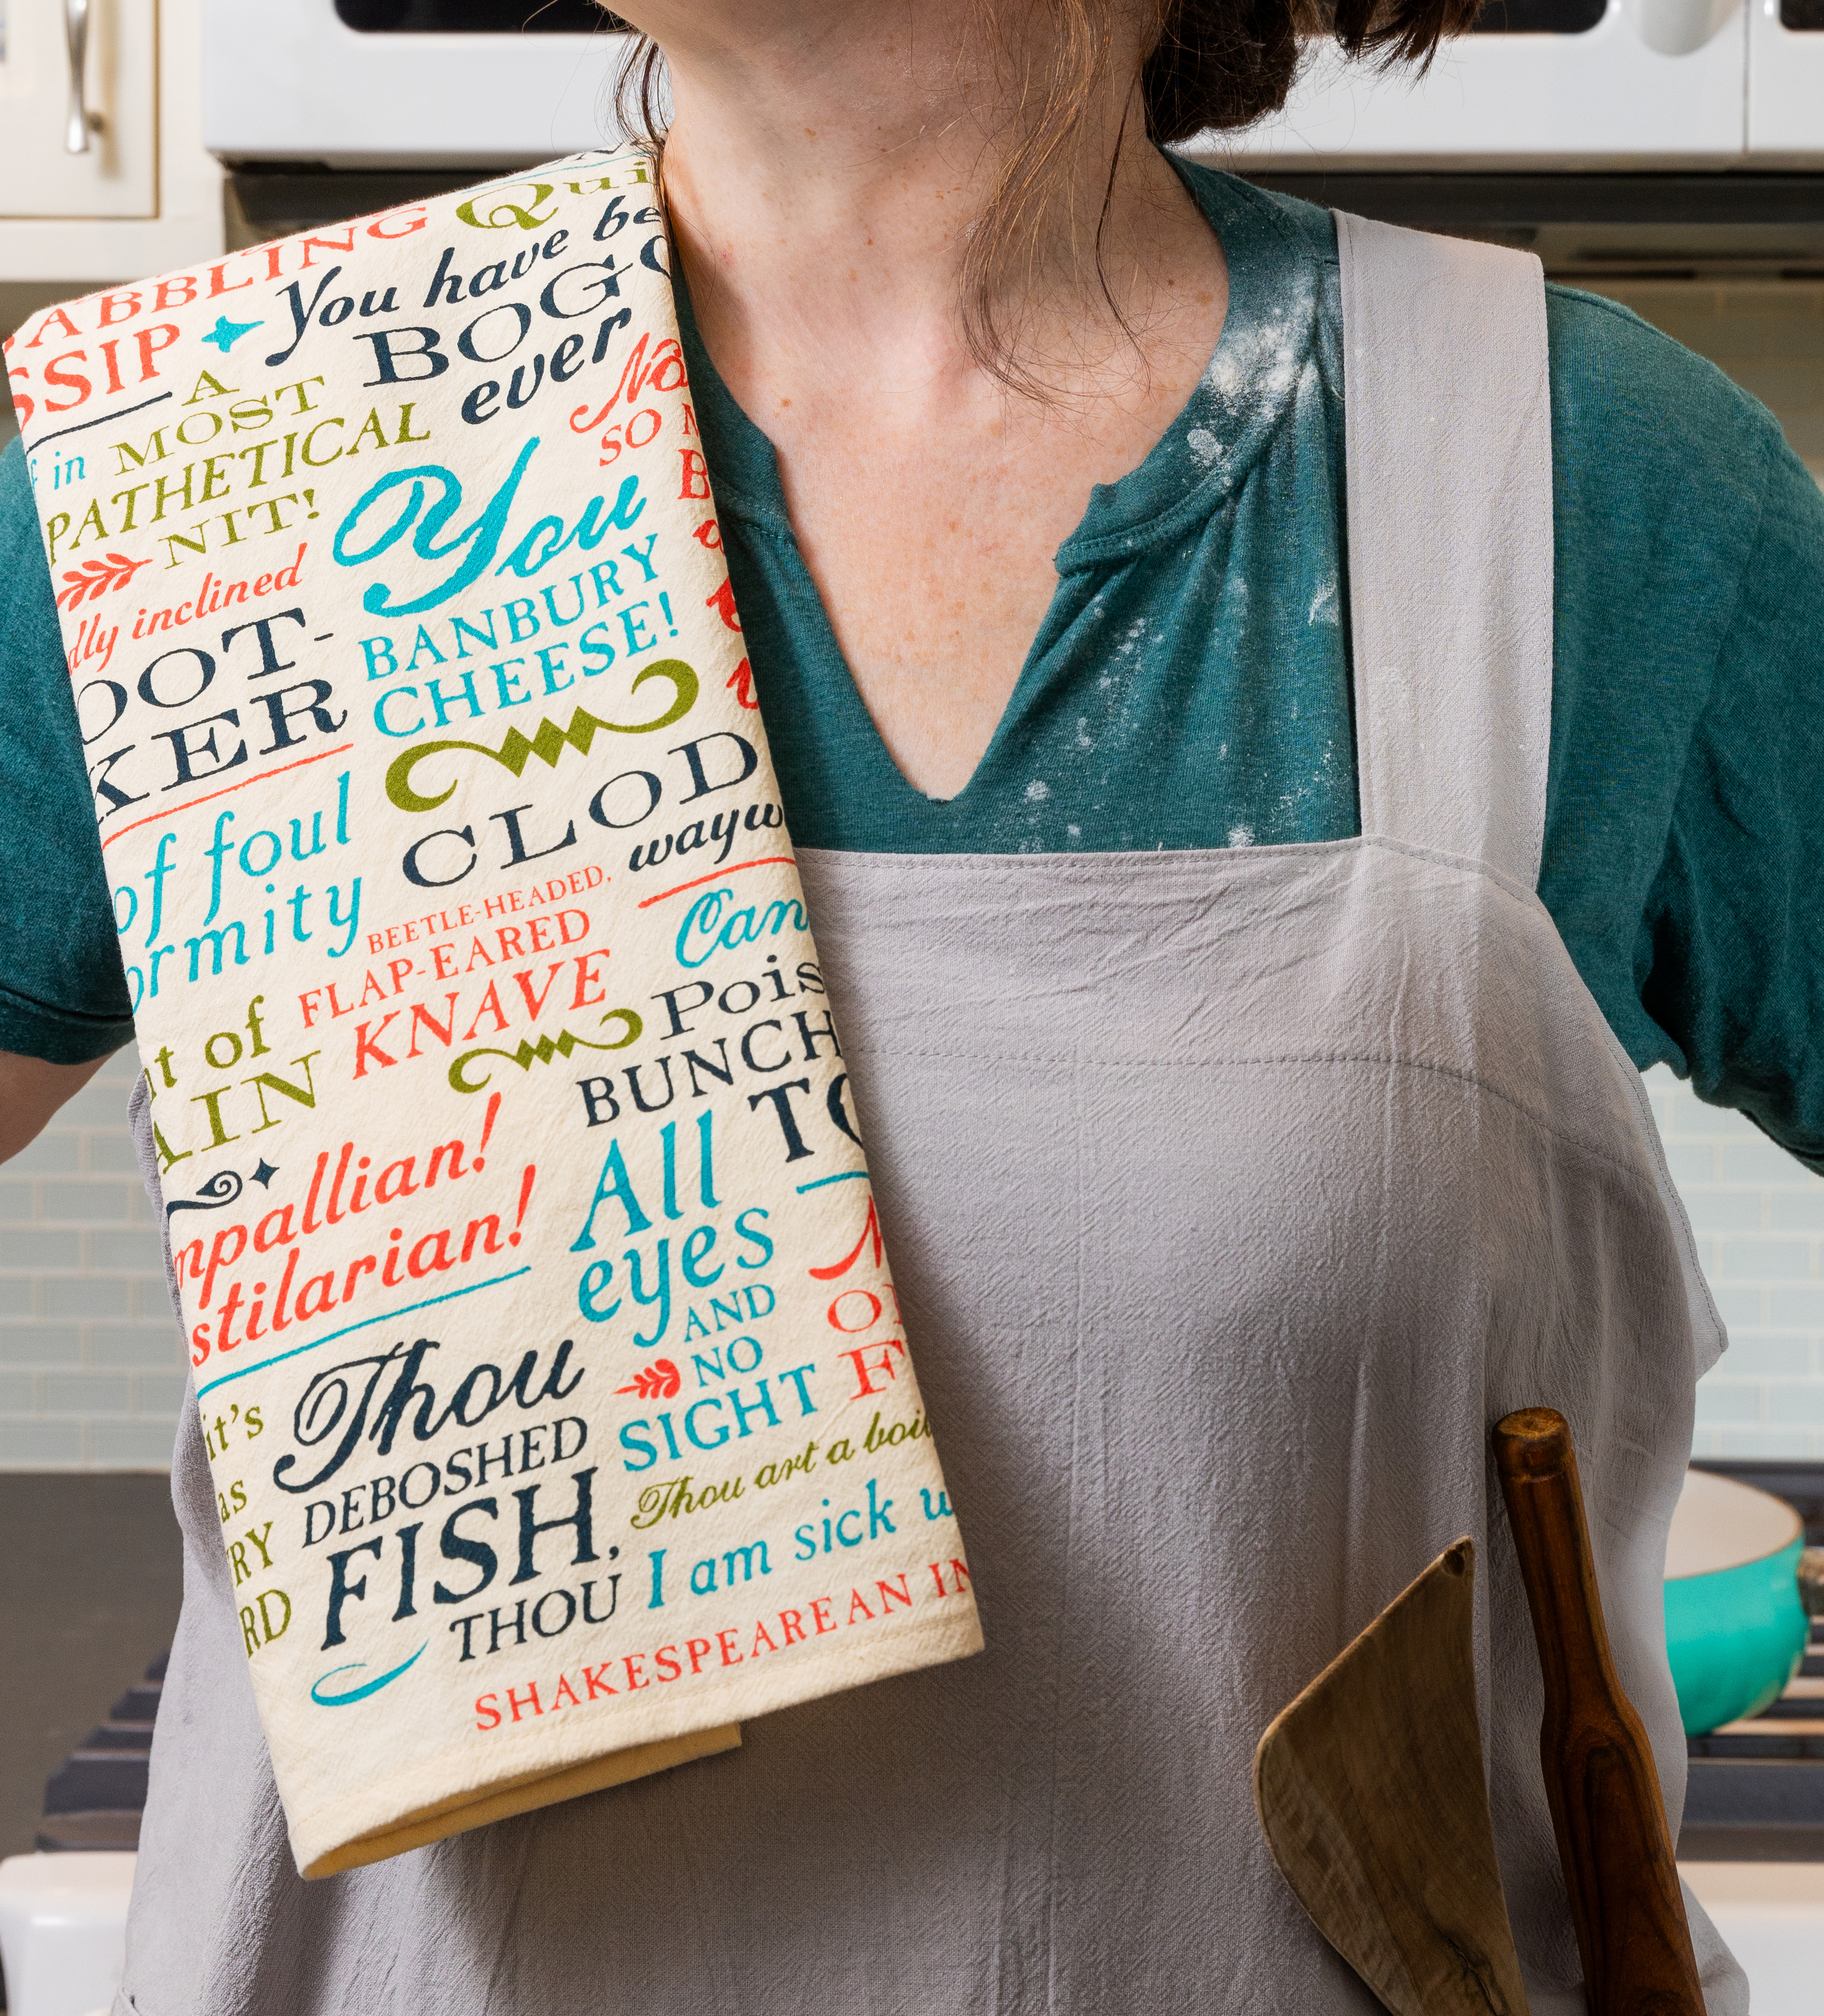 ABBLING
SSIP
Qui
You have be
BOG
ever
in
A
MOST
PATHETICAL
NIT!
SO
dly inclined
OOT-
KER
You
BANBURY
CHEESE!
of foul
ormity
CLOD
wayw
BEETLE-HEADED,
FLAP-EARED
KNAVE
Can
Pois
BUNCH
TO
t of
AIN
mpallian!
stilarian!
All
eyes
AND
NO
SIGHT
O
F
it's
as
RY
RD
Thou
DEBOSHED
FISH,
THOU
Thou art a boil
I am sick w
SHAKESPEAREAN IN